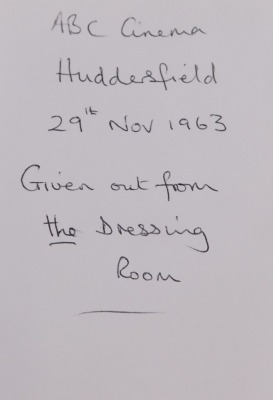 ABC Cinema
Huddersfield
29th Nov 1963
Given out from
the Dressing
Room